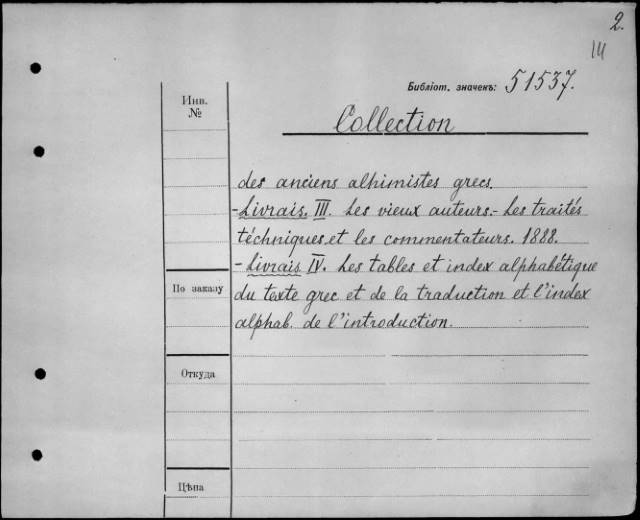 2.
III
Библіот. значекъ: 51537.
Инв.
№
Collection
des anciens alhimistes grecs.
-Livrais. III. Les vieux auteurs.- Les traités
téchniques et les commentateurs. 1888.
-Livrais IV. Les tables et index alphabétique
По заказу
du texte grec et de la traduction et l'index
alphab. de l'introduction.
Откуда
Цѣна